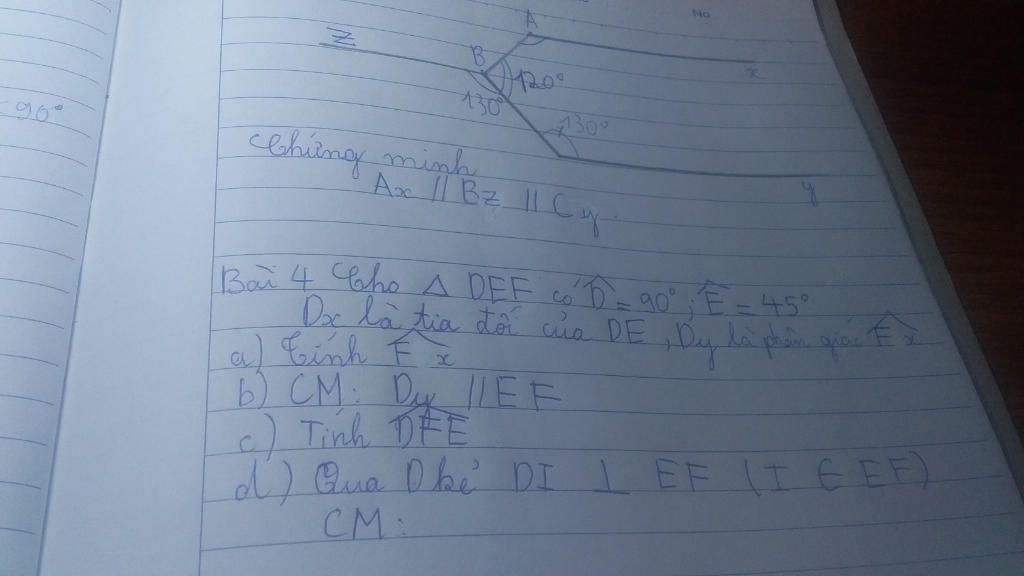 No
= 90°
A
Z
B
120°
x
130°
130°
y
Chứng minh
Ax // Bz // Cy.
Bài 4 Cho △ DEF có D̂ = 90° ; Ê = 45°
Dx là tia đối của DE, Dy là phân giác
a) Tính
b) CM: Dy // EF
c) Tính DFE
d) Qua D kẻ DI ⊥ EF ( I ∈ EF)
CM: